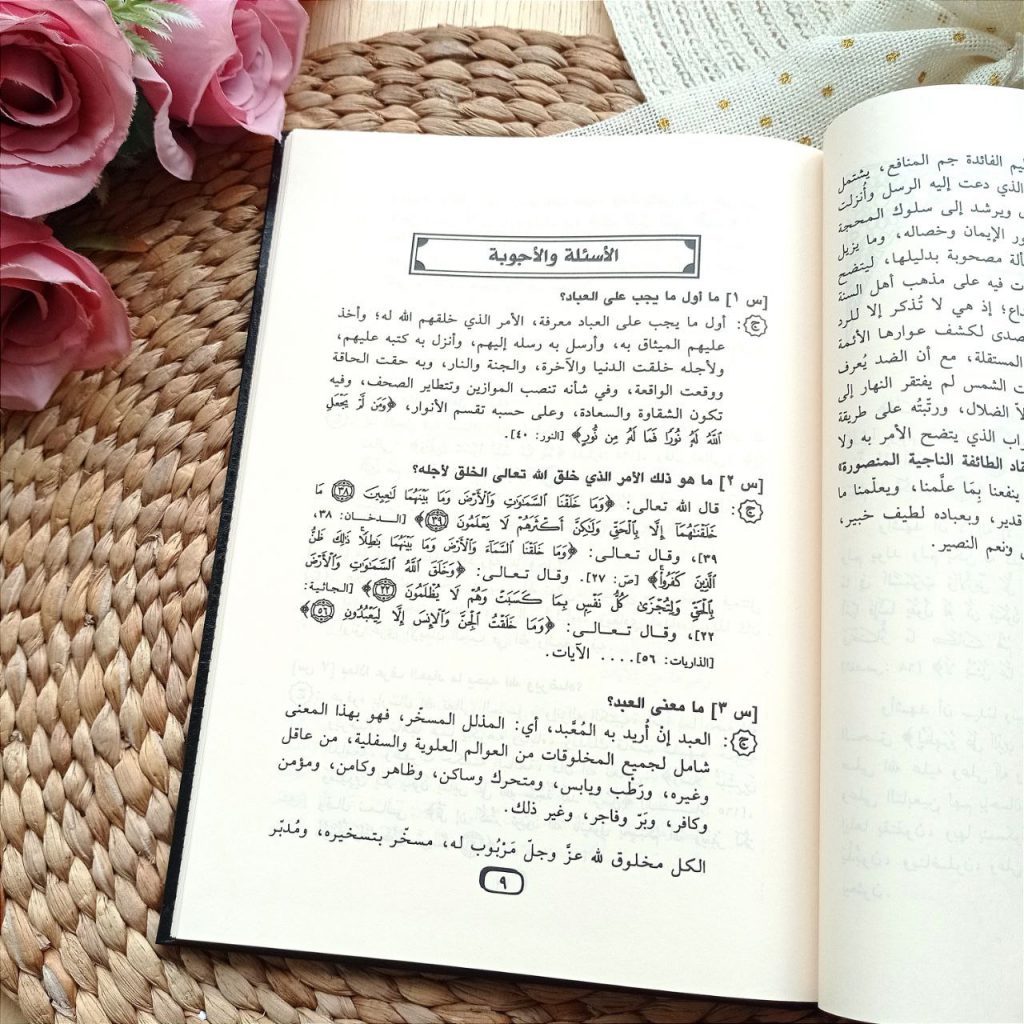 يم الفائدة جم المنافع، يشتمل
الذي دعت إليه الرسل وأُنزلت
ي ويرشد إلى سلوك المحجة
ور الإيمان وخصاله، وما يزيل
ألة مصحوبة بدليلها، ليتضح
ت فيه على مذهب أهل السنة
داع؛ إذ هي لا تُذكر إلا للرد
صدى لكشف عوارها الأئمة
المستقلة، مع أن الضد يُعرف
ت الشمس لم يفتقر النهار إلى
لاّ الضلال، ورتّبتُه على طريقة
واب الذي يتضح الأمر به ولا
قاد الطائفة الناجية المنصورة)
ينفعنا بِمَا علَّمنا، ويعلّمنا ما
قدير، وبعباده لطيف خبير،
ى ونعم النصير.
الأسئلة والأجوبة
[س ١] ما أول ما يجب على العباد؟
ج: أول ما يجب على العباد معرفة، الأمر الذي خلقهم الله له؛ وأخذ
عليهم الميثاق به، وأرسل به رسله إليهم، وأنزل به كتبه عليهم،
ولأجله خلقت الدنيا والآخرة، والجنة والنار، وبه حقت الحاقة
ووقعت الواقعة، وفي شأنه تنصب الموازين وتتطاير الصحف، وفيه
تكون الشقاوة والسعادة، وعلى حسبه تقسم الأنوار، ﴿وَمَن لَّمْ يَجْعَلِ
اللَّهُ لَهُ نُورًا فَمَا لَهُ مِن نُّورٍ﴾ [النور: ٤٠].
[س ٢] ما هو ذلك الأمر الذي خلق الله تعالى الخلق لأجله؟
ج: قال الله تعالى: ﴿وَمَا خَلَقْنَا السَّمَاوَاتِ وَالْأَرْضَ وَمَا بَيْنَهُمَا لَاعِبِينَ ٣٨ مَا
خَلَقْنَاهُمَا إِلَّا بِالْحَقِّ وَلَٰكِنَّ أَكْثَرَهُمْ لَا يَعْلَمُونَ ٣٩﴾ [الدخان: ٣٨،
٣٩]، وقال تعالى: ﴿وَمَا خَلَقْنَا السَّمَاءَ وَالْأَرْضَ وَمَا بَيْنَهُمَا بَاطِلًا ذَٰلِكَ ظَنُّ
الَّذِينَ كَفَرُوا﴾ [ص: ٢٧]. وقال تعالى: ﴿وَخَلَقَ اللَّهُ السَّمَاوَاتِ وَالْأَرْضَ
بِالْحَقِّ وَلِتُجْزَىٰ كُلُّ نَفْسٍ بِمَا كَسَبَتْ وَهُمْ لَا يُظْلَمُونَ ٢٢﴾ [الجاثية:
٢٢]، وقال تعالى: ﴿وَمَا خَلَقْتُ الْجِنَّ وَالْإِنسَ إِلَّا لِيَعْبُدُونِ ٥٦﴾
[الذاريات: ٥٦].... الآيات.
[س ٣] ما معنى العبد؟
ج: العبد إنْ أُريد به المُعَبَّد، أي: المذلل المسخّر، فهو بهذا المعنى
شامل لجميع المخلوقات من العوالم العلوية والسفلية، من عاقل
وغيره، ورَطْب ويابس، ومتحرك وساكن، وظاهر وكامن، ومؤمن
وكافر، وبَرّ وفاجر، وغير ذلك.
الكل مخلوق لله عزَّ وجلّ مَرْبُوب له، مسخّر بتسخيره، ومُدبّر
٩